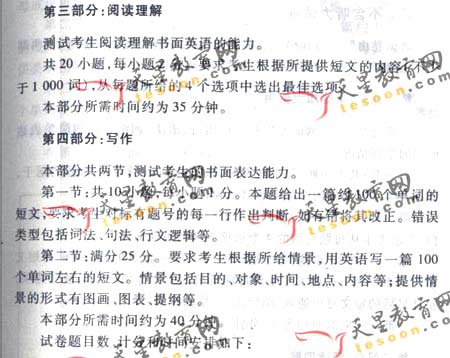 第三部分:阅读理解
测试考生阅读理解书面英语的能力。
共20小题,每小题2分。要求考生根据所提供短文的内容(不少
于1 000词),从每题所给的4个选项中选出最佳选项。
本部分所需时间约为35分钟。
第四部分:写作
本部分共两节,测试考生的书面表达能力。
第一节:共10小题,每小题1分。本题给出一篇约100个单词的
短文,要求考生对标有题号的每一行作出判断,如有错将其改正。错误
类型包括词法、句法、行文逻辑等。
第二节:满分25分。要求考生根据所给情景,用英语写一篇100
个单词左右的短文。情景包括目的、对象、时间、地点、内容等;提供情
景的形式有图画、图表、提纲等。
本部分所需时间约为40分钟。
试卷题目数、计分和时间安排如下:
天星教育网
tesoon.com
天星教育网
tesoon.com
天星教育网
tesoon.com
天星教育网
tesoon.com